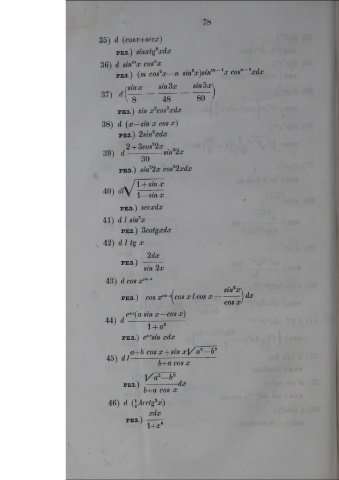 78
35) d (cosx+secx)
РЕЗ.) sinxtg²xdx
36) d sinᵐx cosⁿx
РЕЗ.) (m cos²x—n sin²x)sinᵐ⁻¹x cosⁿ⁻¹xdx
37) d(sin x/8 — sin 3x/48 — sin 5x/80)
РЕЗ.) sin x²cos³xdx
38) d (x—sin x cos x)
РЕЗ.) 2sin²xdx
39) d 2+3cos²2x/30 sin³2x
РЕЗ.) sin²2x cos³2xdx
40) dl√(1+sin x/1—sin x)
РЕЗ.) secxdx
41) d l sin³x
РЕЗ.) 3cotgxdx
42) d l tg x
РЕЗ.) 2dx/sin 2x
43) d cos x
РЕЗ.) cos x (cos x l cos x — sin²x/cos x) dx
44) d eᵃˣ(a sin x—cos x)/1+a²
РЕЗ.) eᵃˣsin xdx
45) d l a+b cos x+sin x√a²—b²/b+a cos x
РЕЗ.) √a²—b²/b+a cos x dx
46) d (Arctg²x)
РЕЗ.) xdx/1+x⁴